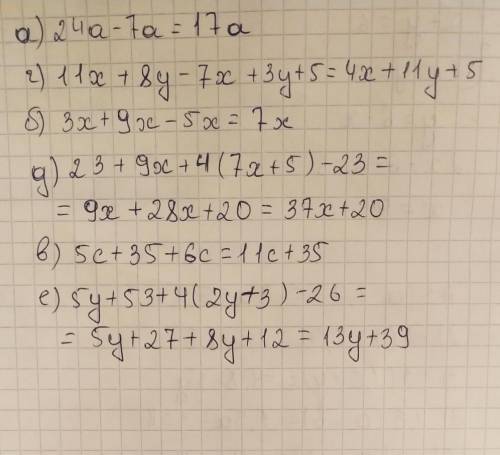 а) 24a - 7a = 17a
г) 11x + 8y - 7x + 3y + 5 = 4x + 11y + 5
б) 3x + 9x - 5x = 7x
д) 23 + 9x + 4(7x + 5) - 23 =
= 9x + 28x + 20 = 37x + 20
в) 5c + 35 + 6c = 11c + 35
е) 5y + 53 + 4(2y + 3) - 26 =
= 5y + 27 + 8y + 12 = 13y + 39